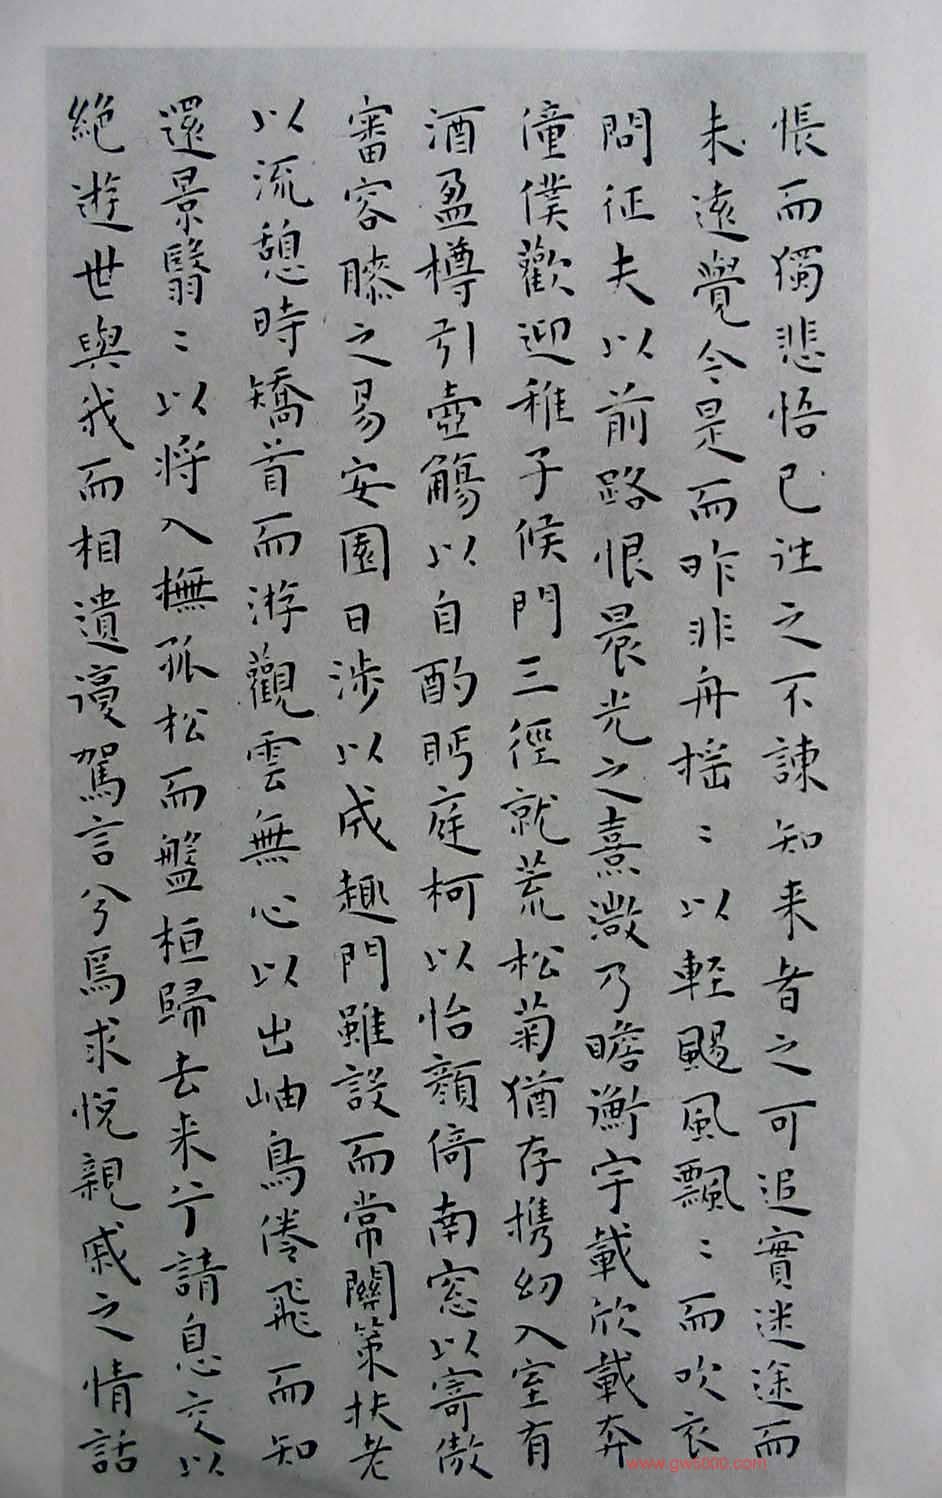 悵而獨悲悟已往之不諫知来者之可追實迷途而
未遠覺今是而昨非舟揺〻以輕颺風飄〻而吹衣
問征夫以前路恨晨光之熹微乃瞻衡宇載欣載奔
僮僕歡迎稚子候門三徑就荒松菊猶存携幼入室有
酒盈樽引壺觴以自酌眄庭柯以怡顔倚南窓以寄傲
審容膝之易安園日涉以成趣門雖設而常關策扶老
以流憩時矯首而游觀雲無心以出岫鳥倦飛而知
還景翳〻以将入撫孤松而盤桓歸去来兮請息交以
絶遊世與我而相遺復駕言兮焉求悦親戚之情話
www.gw8000.com